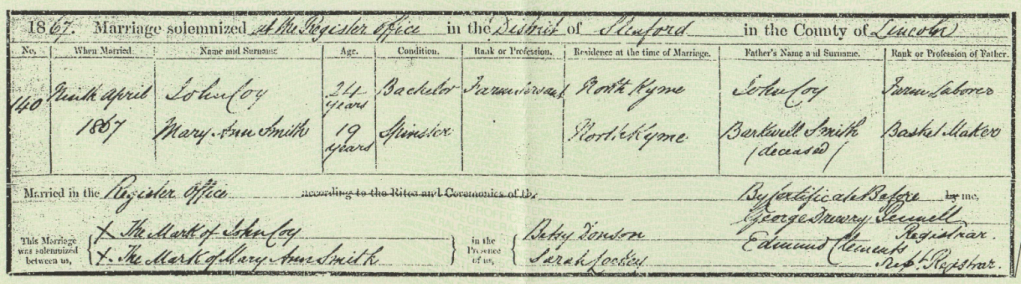 1867. Marriage solemnized at the Register Office in the District of Sleaford in the County of Lincoln
No. When Married. Name and Surname. Age. Condition. Rank or Profession. Residence at the time of Marriage. Father's Name and Surname. Rank or Profession of Father.
140 Ninth April John Coy 24 years Bachelor Farm Servant North Kyme John Coy Farm Laborer
1867 Mary Ann Smith 19 years Spinster North Kyme Barkwell Smith (deceased) Basket Maker
Married in the Register Office according to the Rites and Ceremonies of the By Certificate Before by me,
This Marriage was solemnized between us, X The Mark of John Coy in the Presence of us, Betsy George Drewry Registrar
X The Mark of Mary Ann Smith Sarah Edmund Clements Supt. Registrar.